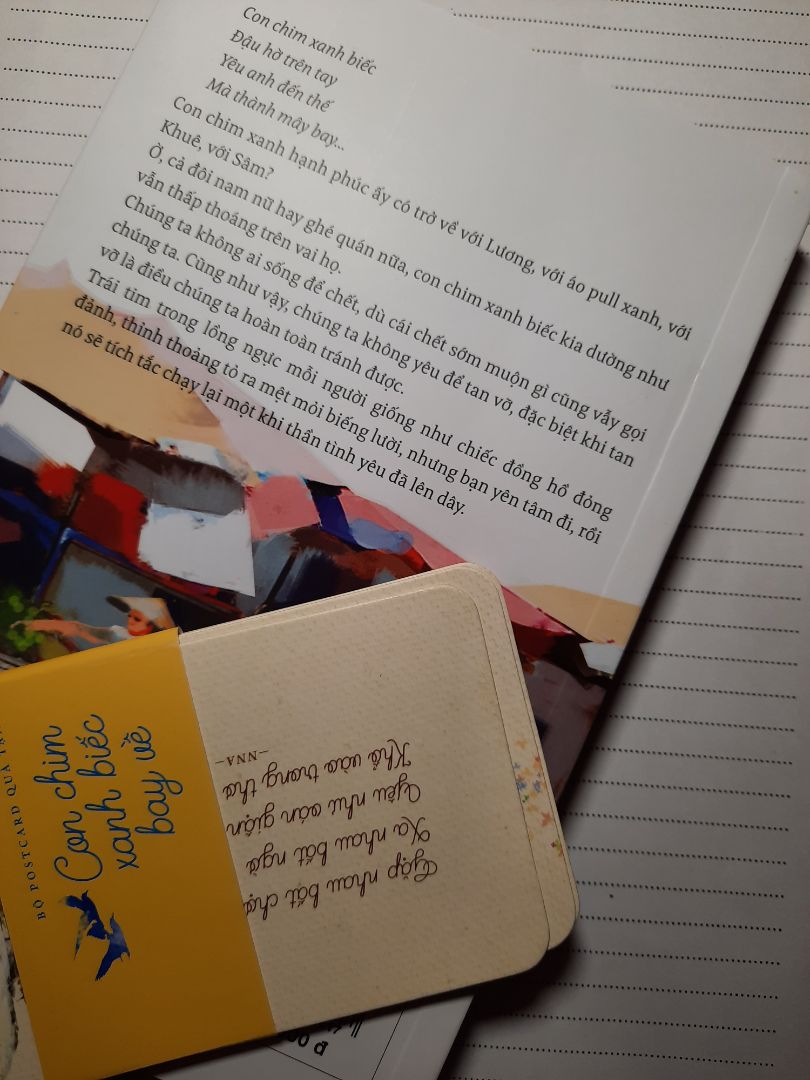 Con chim xanh biếc
Đậu hờ trên tay
Yêu anh đến thế
Mà thành mây bay...
Con chim xanh hạnh phúc ấy có trở về với Lương, với áo pull xanh, với
Khuê, với Sâm?
Ờ, cả đôi nam nữ hay ghé quán nữa, con chim xanh biếc kia dường như
vẫn thấp thoáng trên vai họ.
Chúng ta không ai sống để chết, dù cái chết sớm muộn gì cũng vẫy gọi
chúng ta. Cũng như vậy, chúng ta không yêu để tan vỡ, đặc biệt khi tan
vỡ là điều chúng ta hoàn toàn tránh được.
Trái tim trong lồng ngực mỗi người giống như chiếc đồng hồ đỏng
đảnh, thỉnh thoảng tỏ ra mệt mỏi biếng lười, nhưng bạn yên tâm đi, rồi
nó sẽ tích tắc chạy lại một khi thần tình yêu đã lên dây.
BỘ POSTCARD QUÀ TẶ
Con chim
xanh biếc
bay về
Gặp nhau bất chợ
Xa nhau bất ngờ
Yêu như oán giận
Khổ vào trong thơ
–NNA–